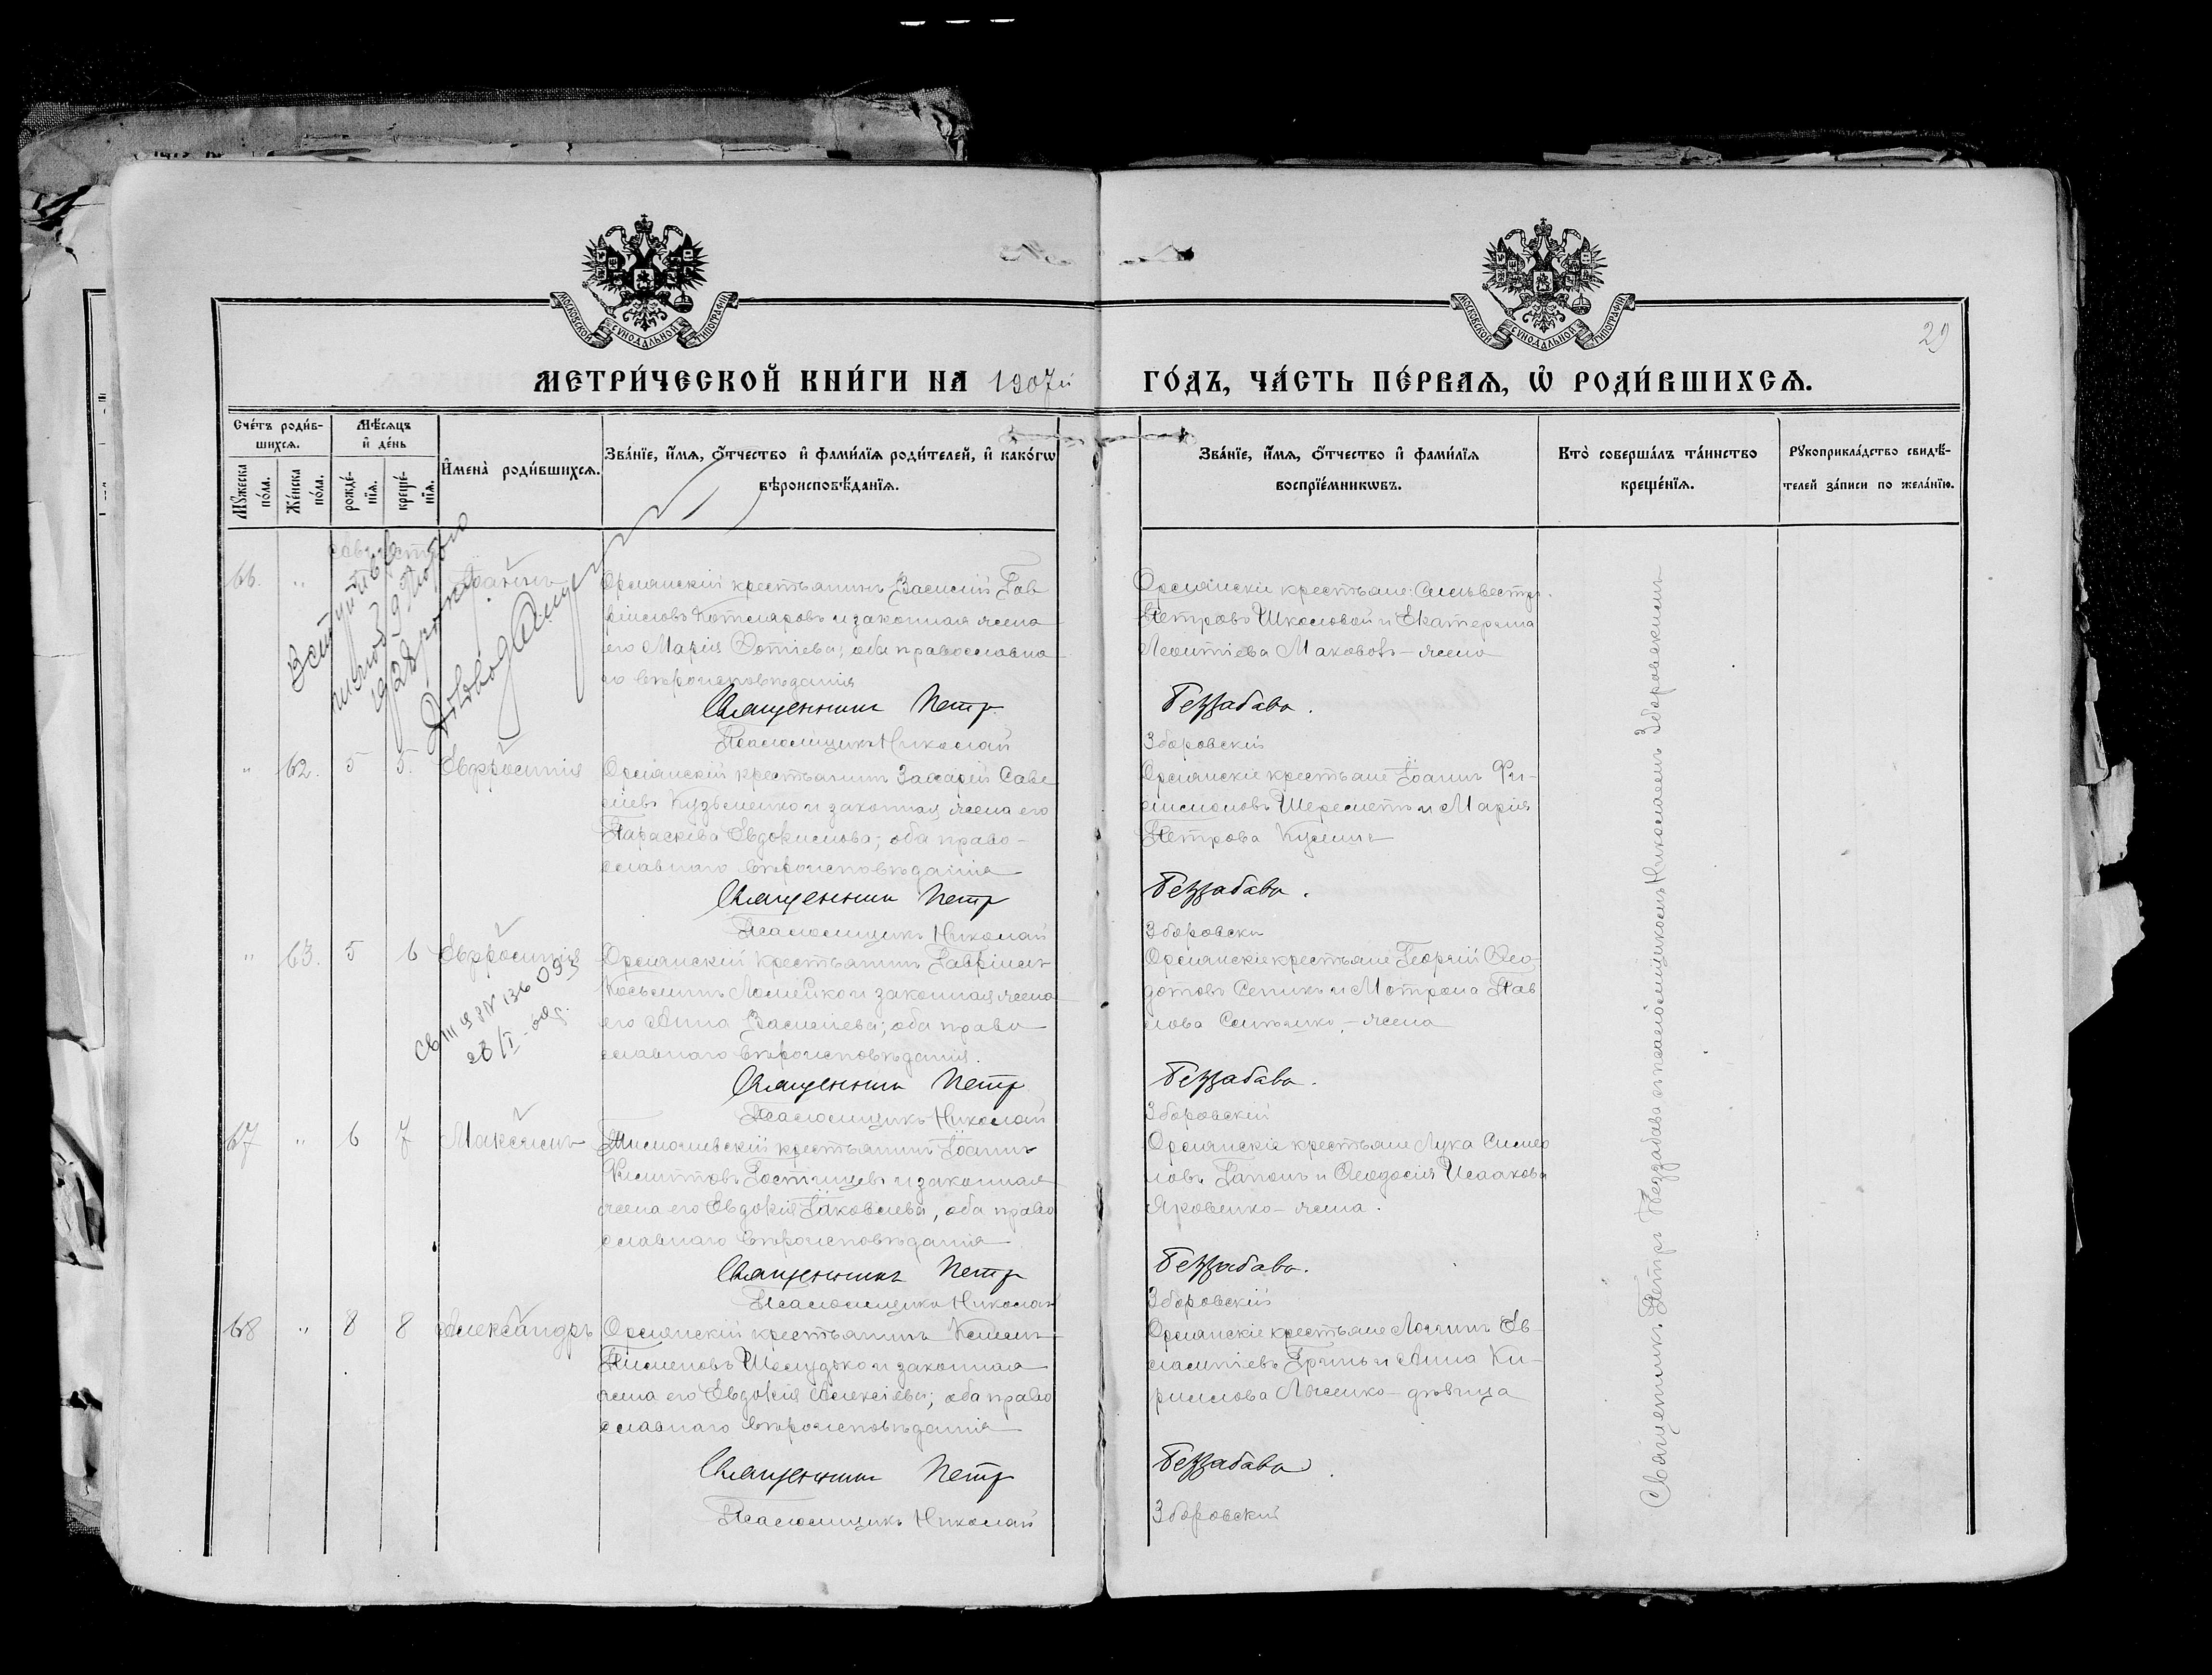 МОСКОВСКОЙ СѴНОДАЛЬНОЙ ТИПОГРАФІИ
МОСКОВСКОЙ СѴНОДАЛЬНОЙ ТИПОГРАФІИ
29
МЕТРИ́ЧЕСКОЙ КНИ́ГИ НА 1907й ГО́ДЪ, ЧА́СТЬ ПЕ́РВАѦ, Ѡ҆ РОДИ́ВШИХСѦ.
Сче́тъ роди́в-
шихсѧ.
Мꙋжеска по́ла.
Же́нска по́ла.
Мѣ́сѧцъ
и҆ де́нь
рожде́-
нїѧ.
креще́-
нїѧ.
И҆мена̀ роди́вшихсѧ.
Зва́нїе, и҆́мѧ, ѻ҆́тчество и҆ фами́лїѧ роди́телей, и҆ како́гѡ
вѣроисповѣ́данїѧ.
Зва́нїе, и҆́мѧ, ѻ҆́тчество и҆ фами́лїѧ
воспрїе́мникѡвъ.
Кто̀ соверша́лъ та́инство
креще́нїѧ.
Рꙋкоприкла́дство свидѣ́-
телей за́писи по жела́нїю.
66. " Іоаннъ
Орлянскій крестьянинъ Василій Гав
ріиловъ Котляровъ и законная жена
его Марія Фотіева; оба православна
го вѣроисповѣданія
Священник Петр
Псаломщикъ Николай
Орлянскіе крестьяне: Сильвестръ
Петровъ Школовой и Екатерина
Леонтіева Маковоз - жена
Беззабава.
Зборовскій
Вступив в
шлюб 9 Лютого
1928 року
" 62. 5 5. Евфросинія
Орлянскій крестьянинъ Захарій Саве
ліевъ Кузьменко и законная жена его
Параскева Евдокимова; оба право-
славнаго вѣроисповѣданія
Священник Петр
Псаломщикъ Николай
Орлянскіе крестьяне Іоаннъ Фи-
лимоновъ Шереметъ и Марія
Петрова
Беззабава.
Зборовски
" 63. 5 6 Евфросинія
Орлянскій крестьянинъ Гавріилъ
Косьминъ Ломейко и законная жена
его Анна Васильева; оба право
славнаго вѣроисповѣданія.
Священник Петр
Псаломщикъ Николай
Орлянскіе крестьяне Георгій Ѳео-
дотовъ Сепикъ и Мотрона Пав
лова - жена
Беззабава.
Зборовскій
28/I-
67 " 6 7 Максимъ
крестьянинъ Іоаннъ
Гостищевъ и законная
жена его Евдокія Іаковлева, оба право
славнаго вѣроисповѣданія
Священник Петр
Псаломщикъ Николай
Орлянскіе крестьяне Лука Симео
новъ Гапонъ и Ѳеодосія Исаакова
Яровенко - жена.
Беззабава.
Зборовскій
68 " 8 8 Александръ
Орлянскій крестьянинъ
Пименовъ Шелудько и законная
жена его Евдокія Алексіева; оба право
славнаго вѣроисповѣданія
Священник Петр
Псаломщикъ Николай
Орлянскіе крестьяне Логинъ Ев-
лампіевъ Гринь и Анна Ки-
риллова Лысенко - дѣвица
Беззабава
Зборовскій
Священникъ Петръ Беззабава съ псаломщикомъ Николаемъ Зборовскимъ